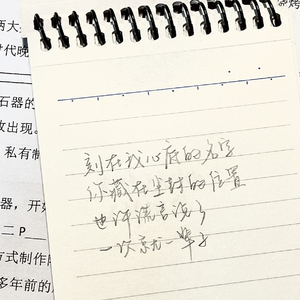 两大
时代晚
石器的
收出现。
私有制
器，开始
二 P
方式制作陶
多年前的
刻在我心底的名字
你藏在尘封的位置
也许谎言说了
一次就一辈子